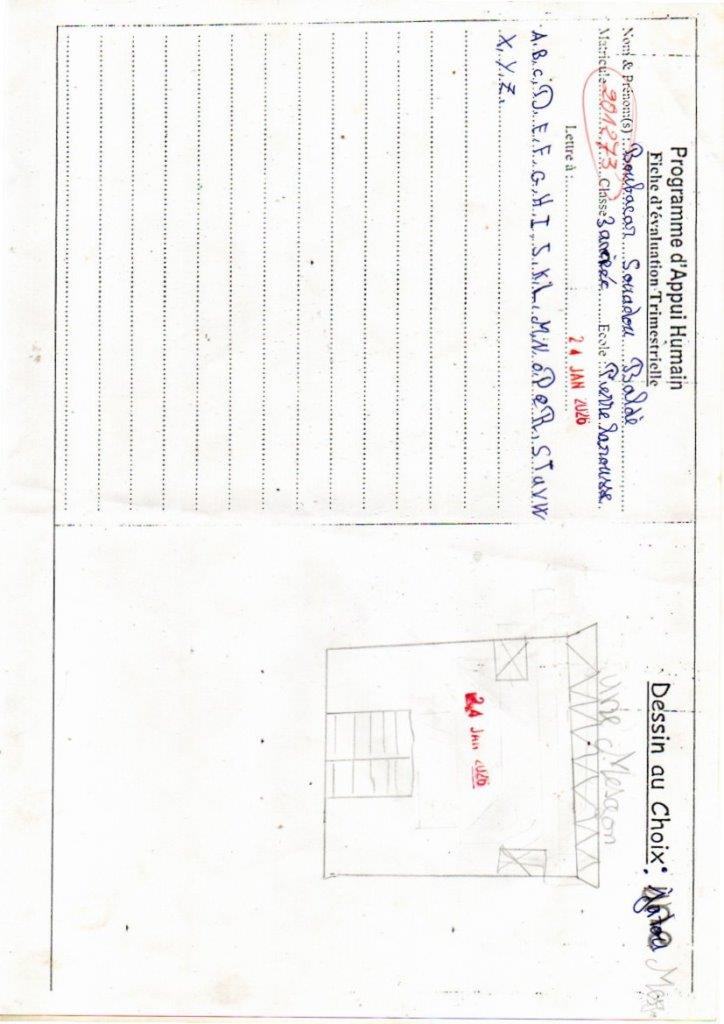 Programme d'Appui Humain
Fiche d'évaluation Trimestrielle
Nom & Prénom(s) : Boubacar Souadou Baldé
Matricule 201273 Classe 3 année Ecole : Pierre Larousse
Lettre à :
24 JAN 2026
A, B, C, D, E, F, G, H, I, S, K, L, M, N, O P Q R, S T U V W
X, Y, Z,
Dessin au Choix :
une Meseon
24 JAN 2026